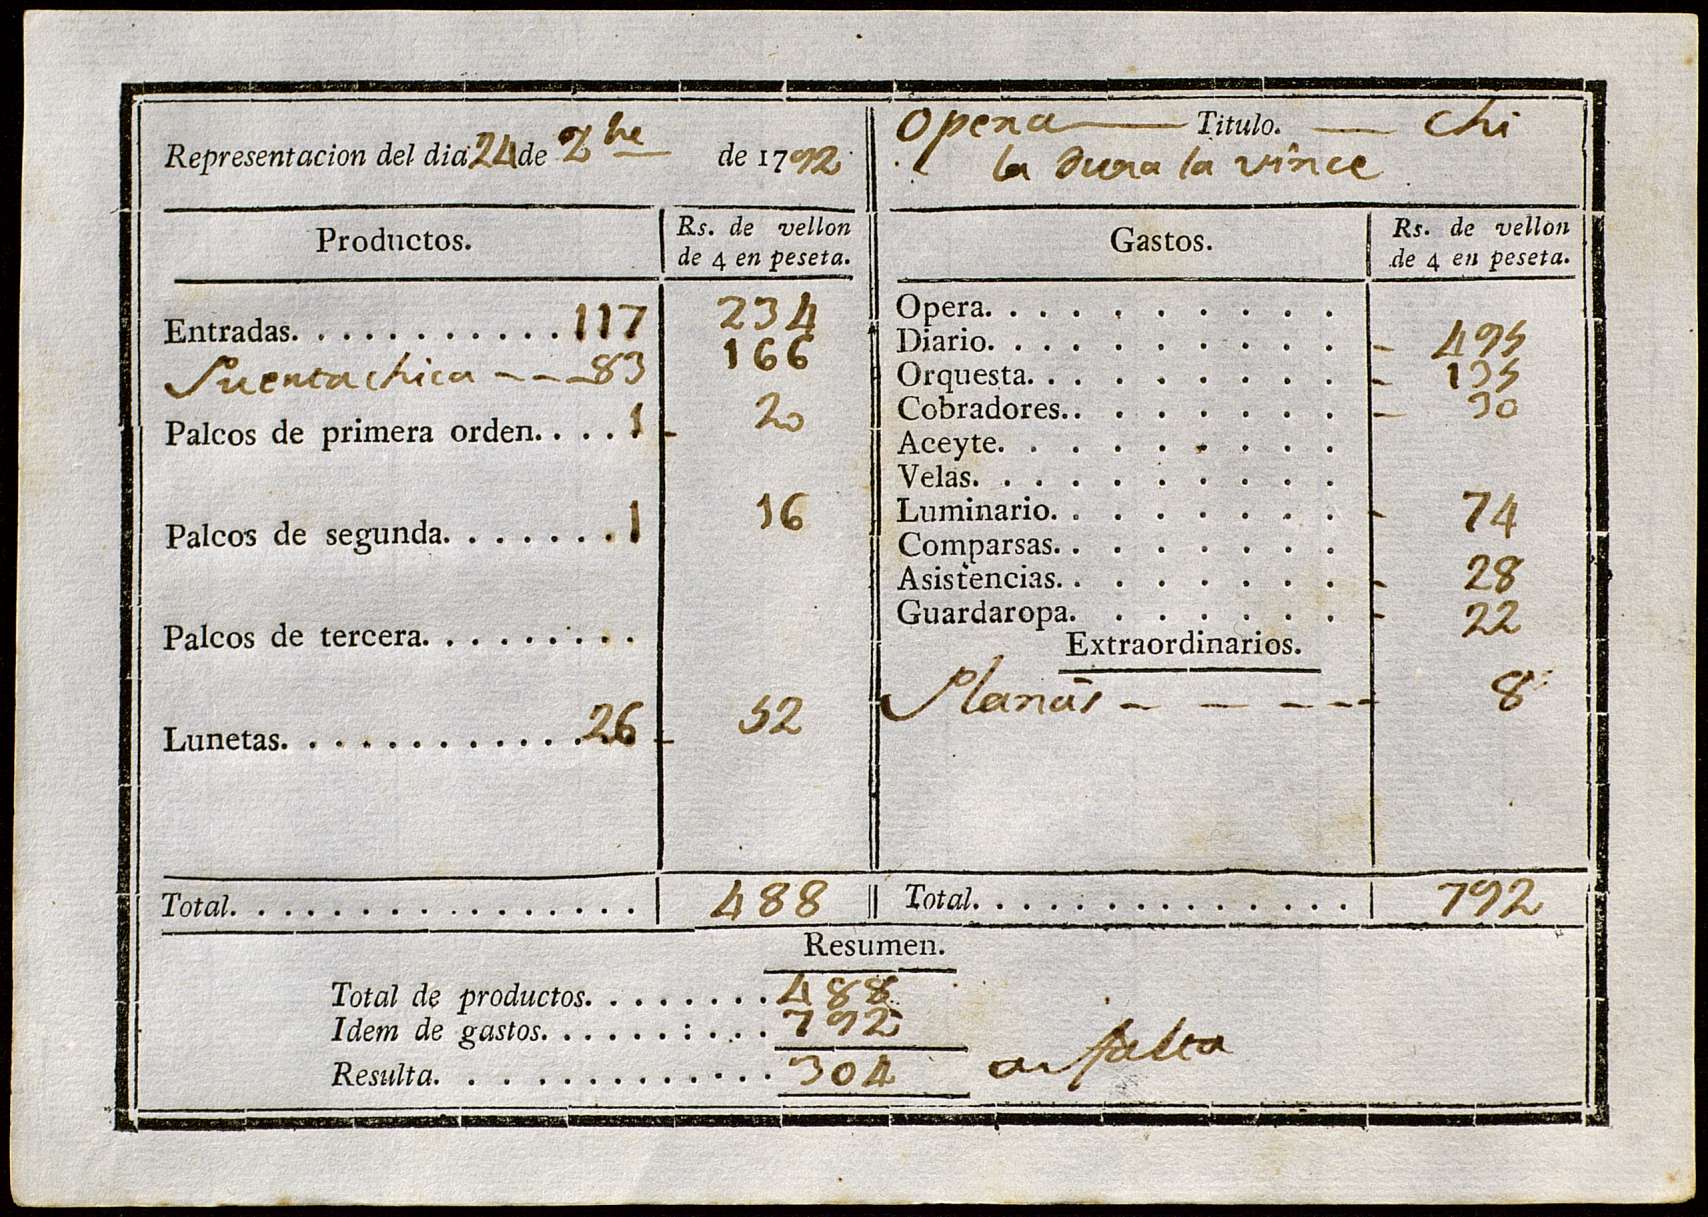 Representacion del dia 24 de de 1792
Opera Titulo. Chi
la dura la vince
Productos.
Rs. de vellon
de 4 en peseta.
Entradas. . . . . . . . . . . 117 234
Puerta chica - - - 83 166
Palcos de primera orden. . . . 1 - 20
Palcos de segunda. . . . . . . 1 16
Palcos de tercera. . . . . . . . .
Lunetas. . . . . . . . . . . . 26 - 52
Total. . . . . . . . . . . . . . . . 488
Gastos.
Rs. de vellon
de 4 en peseta.
Opera. . . . . . . . . .
Diario. . . . . . . . . . - 495
Orquesta. . . . . . . . . - 135
Cobradores.. . . . . . . - 30
Aceyte. . . . . . . . .
Velas. . . . . . . . . .
Luminario. . . . . . . . - 74
Comparsas. . . . . . . .
Asistencias. . . . . . . . - 28
Guardaropa. . . . . . . - 22
Extraordinarios.
Planas - - - - - 8
Total. . . . . . . . . . . . . . . 792
Resumen.
Total de productos. . . . . . . . 488
Idem de gastos. . . . . . : . . . 792
Resulta. . . . . . . . . . . . . 304 falta